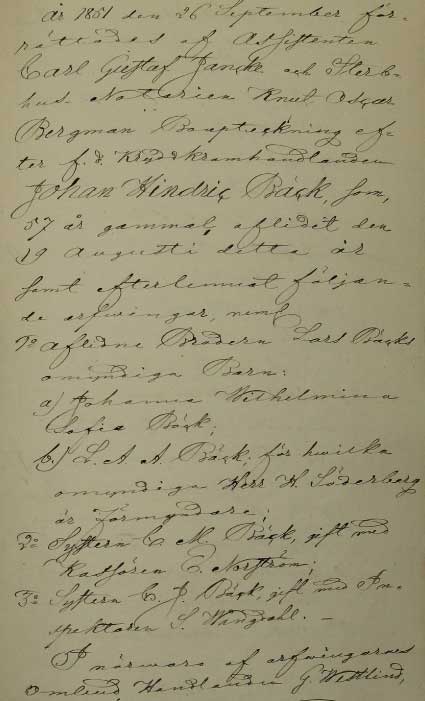 år 1851 den 26 September för-
rättades af Assistenten
Carl Gustaf Jancke och Sterb-
hus-Notarien Knut Oscar
Bergman Bouptekning ef-
ter f. d. Krydkramhandlanden
Johan Hindric Bäck, som,
57 år gammal, aflidit den
19 Augusti detta år
samt efterlemnat följan-
de arfwingar, neml.
1:o aflidne Brodern Lars Bäcks
omyndiga Barn:
a) Johanna Wilhelmina
Sofia Bäck;
b.) L. A. A. Bäck, för hwilka
omyndiga Herr H. Söderberg
är Förmyndare;
2:o Systern C. M. Bäck, gift med
E. Norström;
3:o Systern C. J. Bäck, gift med In-
spektoren S. Wingdahl. –
I närwaro af arfwingarnes
Ombud Handlanden G. Westlind,